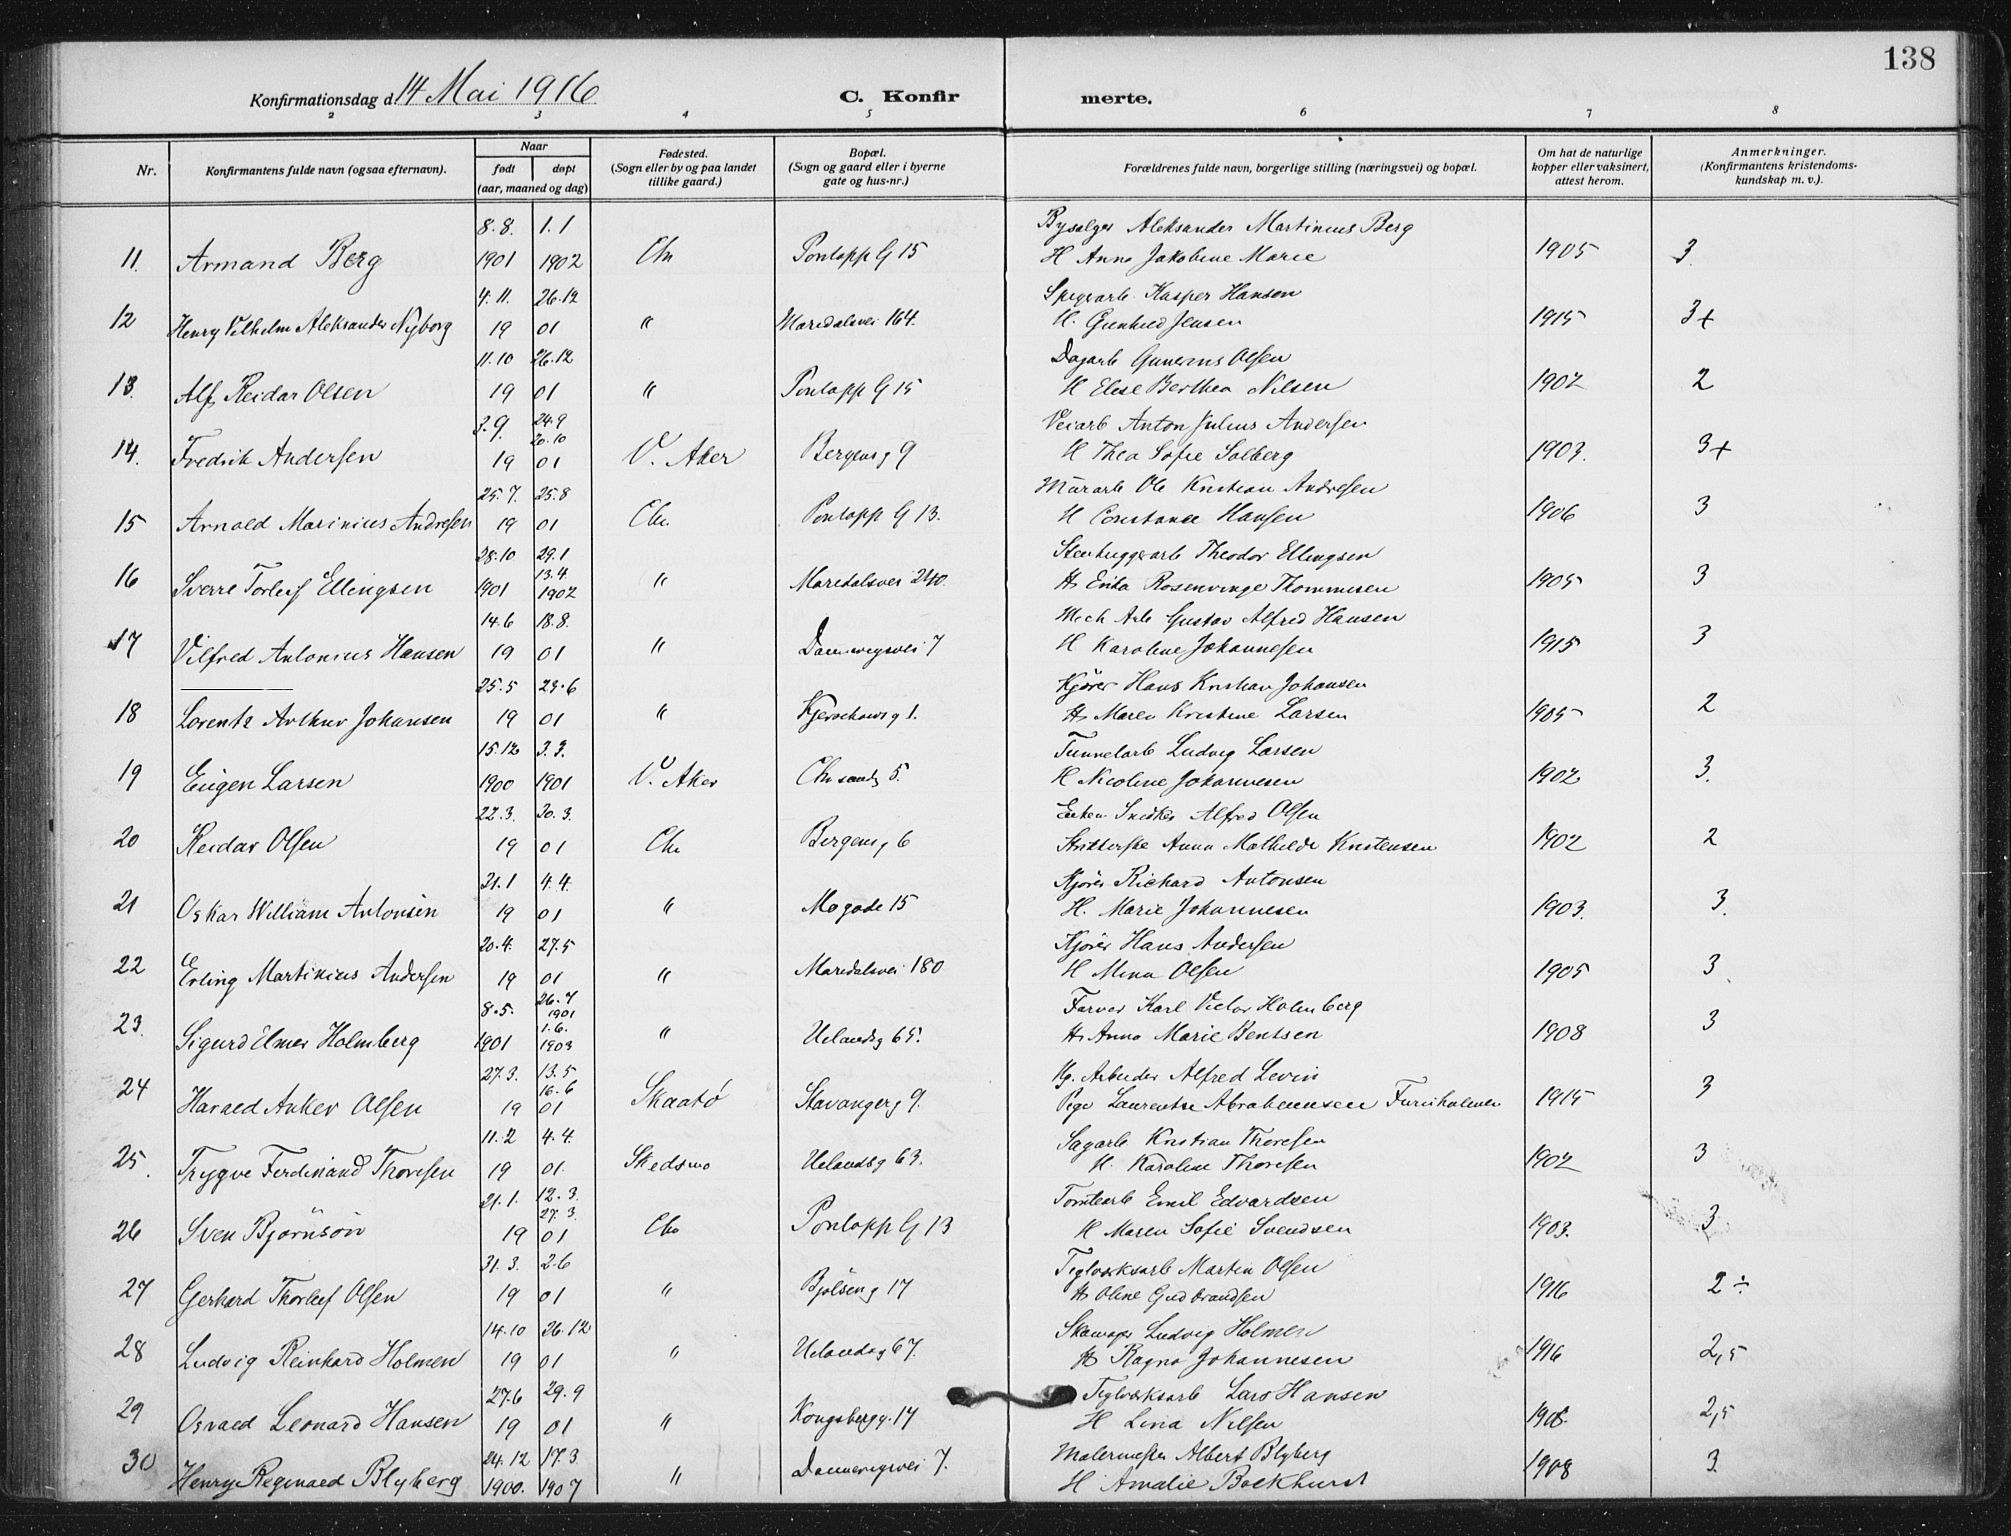 138
Konfirmationsdag d 14 Mai 1916 C. Konfir merte.
2 3 4 5 6 7 8
Nr. Konfirmantens fulde navn (ogsaa efternavn). Naar født døpt (aar, maaned og dag) Fødested. (Sogn eller by og paa landet tillike gaard.) Bopæl. (Sogn og gaard eller i byerne gate og hus-nr.) Forældrenes fulde navn, borgerlige stilling (næringsvei) og bopæl. Om hat de naturlige kopper eller vaksinert, attest herom. Anmerkninger. (Konfirmantens kristendoms- kundskap m. v.).
8.8. 1.1 Bysælger Aleksander Martinius Berg
11. Armand Berg 1901 1902 Chr Pontopp G 15 H Anna Jakobine Marie 1905 3
4.11. 26.12 Kasper Hansen
12 Henry Vilhelm Aleksander Nyborg 19 01 " Maredalsvei 164. H. Gunhild Jensen 1915 3+
11.10 26.12 Dagarb Gunerius Olsen
13. Alf Reidar Olsen 19 01 " Pontopp G 15 H Elise Berthea Nilsen 1902 2
3.9. 24.9 20.10 Veiarb Anton Julius Andersen
14. Fredrik Andersen 19 01 V. Aker Bergensg 9 H Thea Sofie Solberg 1903. 3+
25.7. 25.8 Murarb Ole Kristian Andresen
15 Arnold Marinius Andresen 19 01 Chr. Pontopp G 13. H Constance Hansen 1906 3
28.10 29.1 13.4 Stenhuggerarb Theodor Ellingsen
16 Sverre Torleif Ellingsen 1901 1902 " Maredalsvei 240. H Erika Rosenvinge Thommesen 1905 3
14.6 18.8. Mech Arb Gustav Alfred Hansen
17 Vilfred Antonius Hansen 19 01 " Dannevigsvei 7 H Karoline Johannesen 1915 3
25.5 23.6 Kjører Hans Kristian Johansen
18 Lorentz Arthur Johansen 19 01 " Kjerschowsg 1. H Maren Kristine Larsen 1905 2
15.12 3.3. Tunnelarb Ludvig Larsen
19 Eugen Larsen 1900 1901 V. Aker Chrsandg 5. H Nicoline Johannesen 1902 3.
22.3. 20.3. Enkem Snedker Alfred Olsen
20 Reidar Olsen 19 01 Chr Bergensg 6 Anna Mathilde Kristensen 1902 2
21.1 4.4. Kjører Richard Antonsen
21 Oskar William Antonsen 19 01 " Mogade 15 H. Marie Johannesen 1903. 3.
20.4. 27.5 Kjører Hans Andersen
22 Erling Martinius Andersen 19 01 " Maredalsvei 180 H Mina Olsen 1905 3
8.5. 26.7 1901 1.6. Farver Karl Victor Holmberg
23. Sigurd Elmer Holmberg 1901 1903 " Uelandsg 65. H Anna Marie Bentsen 1908 3
27.3. 13.5 16.6 Arbeider Alfred Levin
24 Harald Anker Olsen 19 01 Skaatø Stavangerg 9. Pige Laurentse Abrahamsen Furuholmen 1915 3
11.2 4.4. Sagarb Kristian Thoresen
25. Trygve Ferdinand Thoresen 19 01. Skedsmo Uelandsg 63. H. Karoline Thoresen 1902 3
21.1. 12.3. 27.3. Tomtearb Emil Edvardsen
26 Sven Bjørnson 19 01 Chr Pontopp G 13 H Maren Sofie Svendsen 1903. 3
31.3. 2.6 Teglværksarb Martin Olsen
27 Gerhard Thorleif Olsen 19 01 " Bjølseng 17 H Oline Gudbrandsen 1916 2 ÷
14.10 26.12 Skomager Ludvig Holmen
28 Ludvig Reinhard Holmen 19 01 " Uelandsg 67. H Ragna Johannesen 1916 2,5
27.6 29.9 Teglværksarb Lars Hansen
29 Osvald Leonard Hansen 19 01 " Kongsbergg. 17 H Lina Nilsen 1908. 2,5
24.12 17.3 Malermester Albert Blyberg
30 Henry Reginald Blyberg 1900. 1907 " Dannevigsvei 7. H Amalie Bockhurst 1908 3